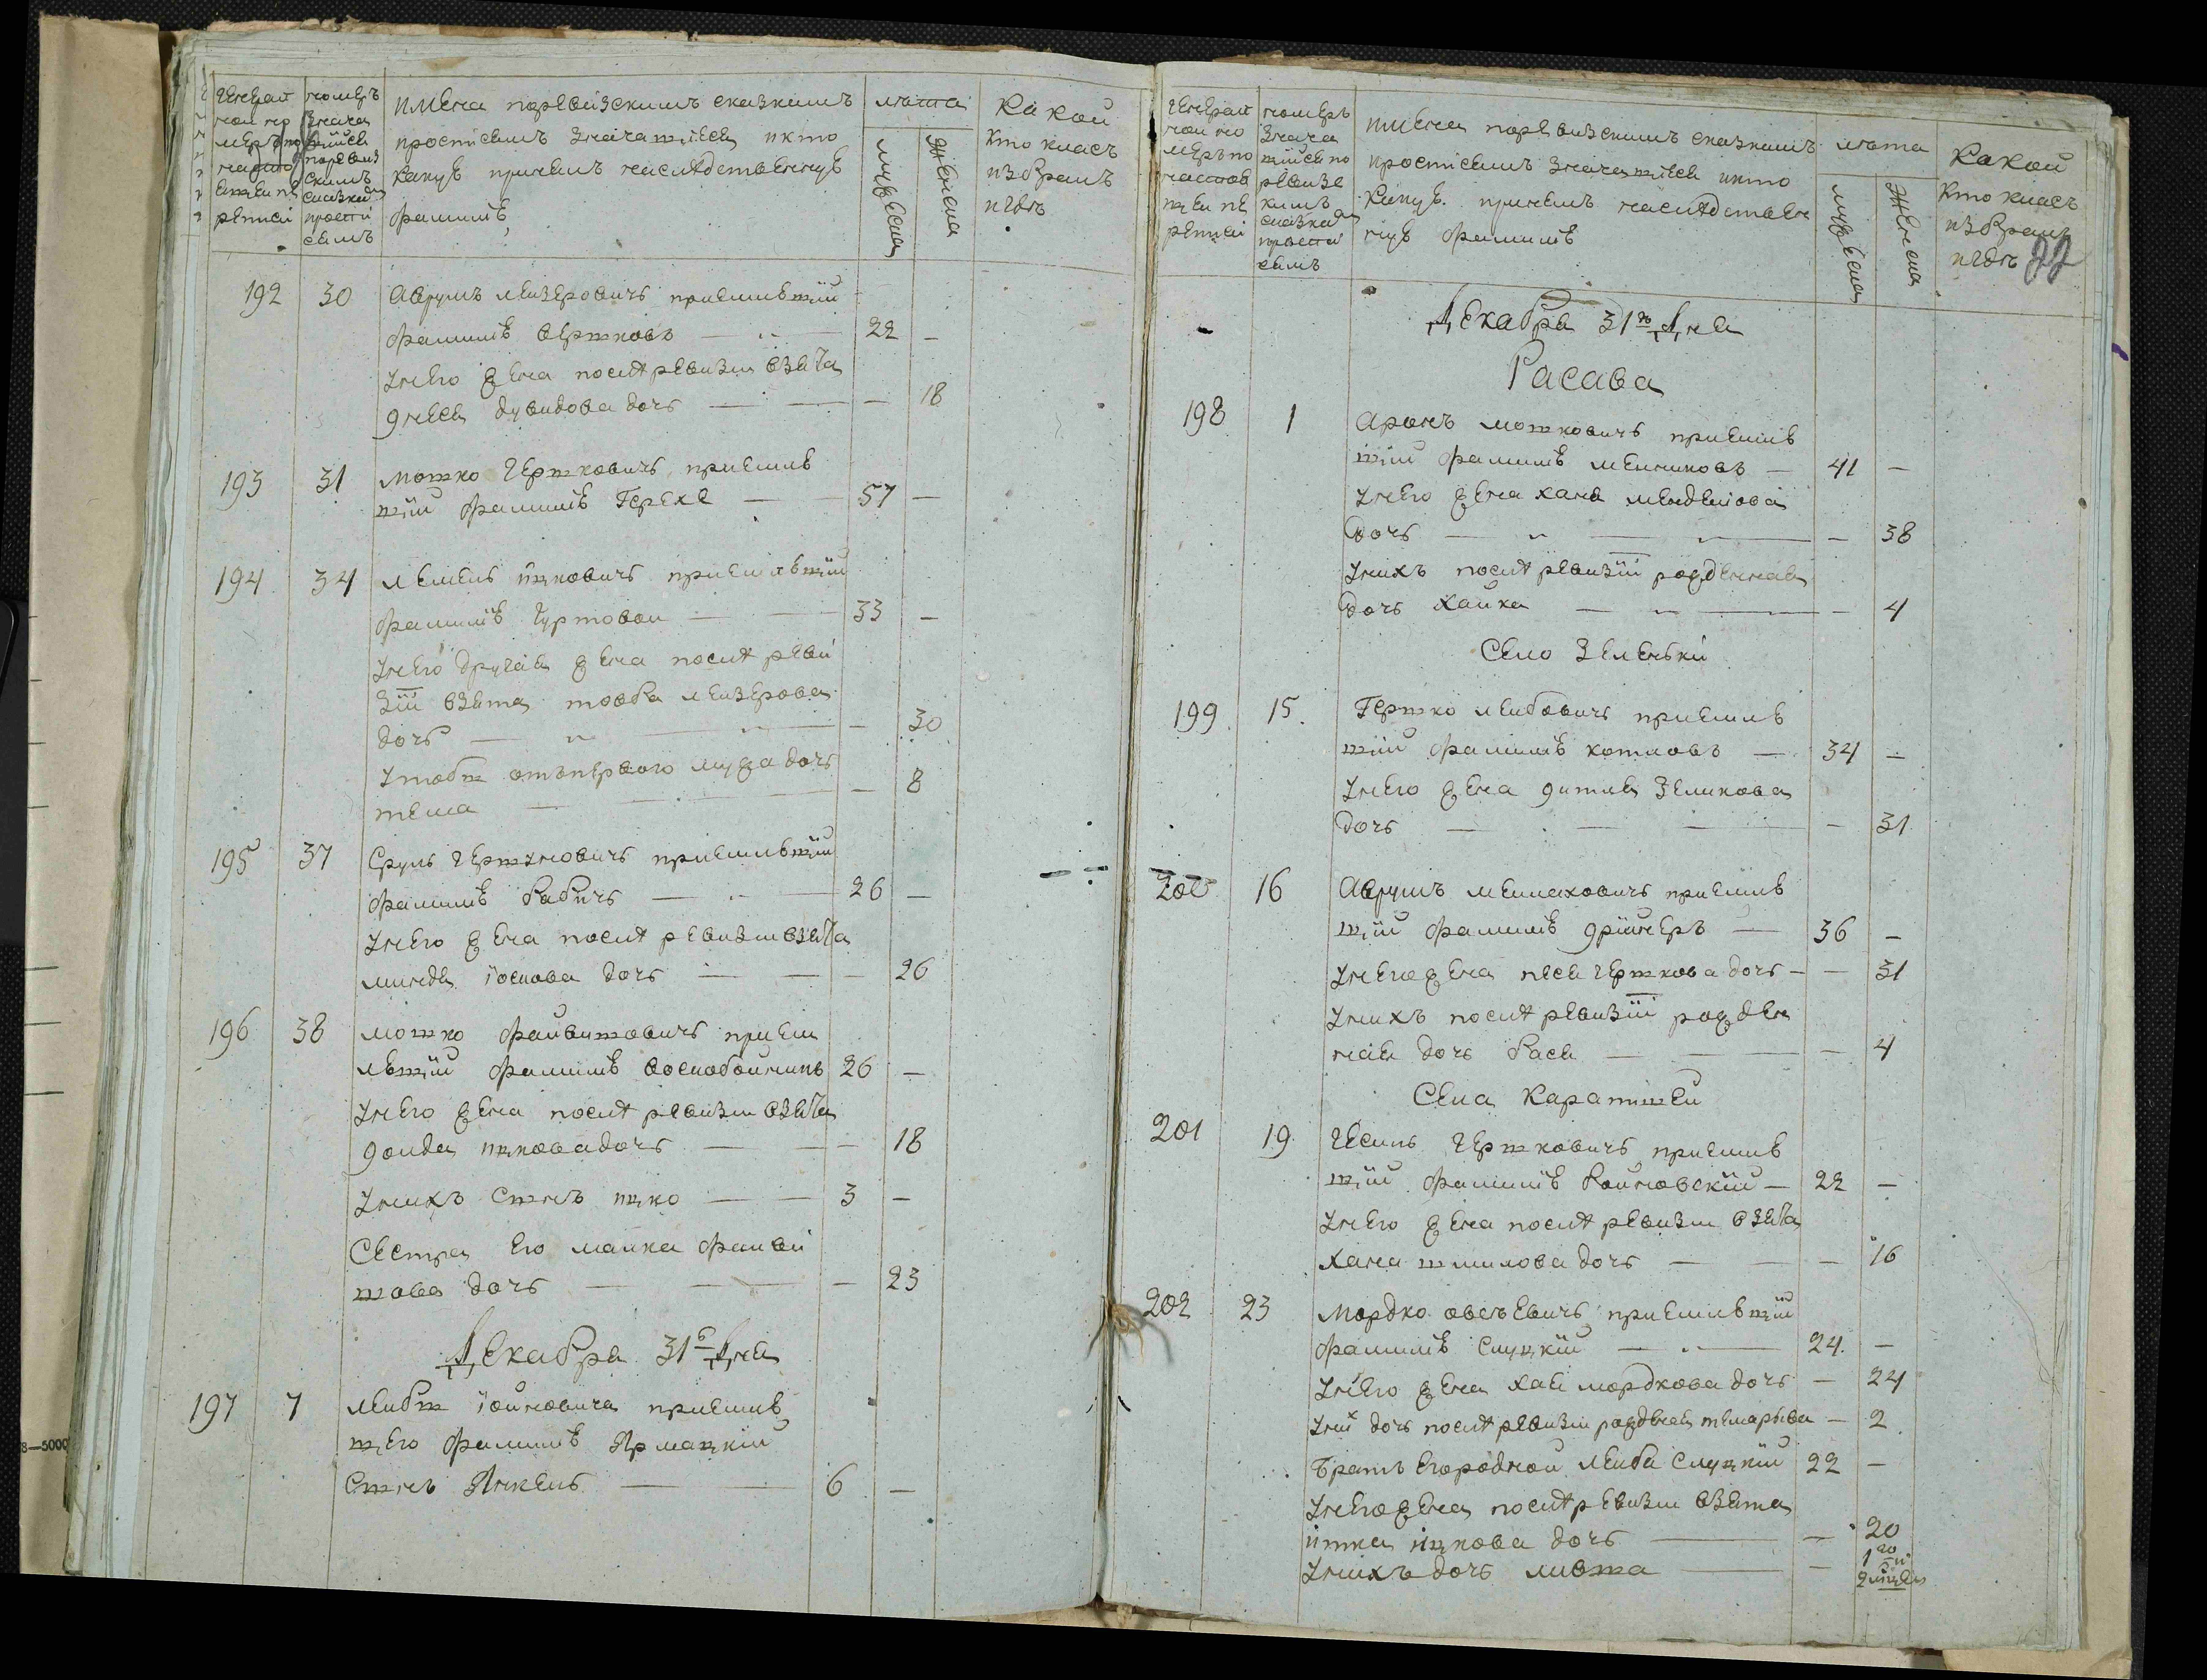 генерал номер
ной но знача
меръ по щийся
настоя по ревиз
щей пе скимъ
реписи сказкамъ
проспи
самъ
имена по ревизскимъ сказкамъ
просписямъ значащиеся и кто
какую принялъ наследственную
фамилию
лета
мужеска
женска
Какой
кто класъ
избралъ
и где
192 30 Аврумъ лейзеровичъ принявший
фамилию вершковъ — 22 —
у него жена после ревизии взята
гнеся дувидова дочь — — 18
193 31 мошко гершковичъ приняв
ший фамилию Терехе — 57 —
194 34 лемель ицковичъ принявший
фамилию гуртовой — 33 —
у него другая жена после реви
зии взята товба лейзерова
дочь — — 30
у товбы отъ первого мужа дочь
тема — — 8
195 37 Сруль гершуновичъ принявший
фамилию бабичъ — 26 —
у него жена после ревизии взята
миндя иоснова дочь — — 26
196 38 мошко файвишовичъ приня
вший фамилию воскобойникъ 26 —
у него жена после ревизии взята
голда ицкова дочь — — 18
у нихъ сынъ ицко — 3 —
Сестра его малка файви
шова дочь — — 23
Декабря 31 Дня
197 7 лейбы иойновича приняв
шего фамилию Ярмацкий
сынъ Янкель — 6 —
генерал номер
ной но знача
меръ по щийся по
настоя ревизс
щей пе кимъ
реписи сказка
проспи
самъ
имена по ревизскимъ сказкамъ
просписямъ значащиеся и кто
какую принялъ наследствен
ную фамилию
лета
мужеска
женска
Какой
кто класъ
избралъ
и где 22
Декабря 31го Дня
Расава
198 1 Аронъ мошковичъ приняв
ший фамилию мельниковъ — 41 —
у него жена хана менделова
дочь — — 38
у нихъ после ревизии рожденная
дочь хайка — — 4
Село Зеленьки
199 15 Гершко лейбовичъ приняв
ший фамилию котловъ — 34 —
у него жена гитля Зеликова
дочь — — 31
200 16 Аврумъ мейлаховичъ приняв
ший фамилию гриинеръ — 36 —
у него жена песя гершкова дочь — — 31
у нихъ после ревизии рожден
ная дочь бася — — 4
Села Каратышей
201 19 гесиль гершковичъ приняв
ший фамилию Войновский — 22 —
у него жена после ревизии взята
хана шмилова дочь — — 16
202 23 Мордко овсъевичъ принявший
фамилию Слуцкий — 24 —
у него жена хая мордкова дочь — 24
у нихъ дочь после ревизии рожденая темарыва — 2
братъ его родной лейба Слуцкий 22 —
у него жена после ревизии взята
итка ицкова дочь — — 20
у нихъ дочь ливша — — 1го и
2 месяц